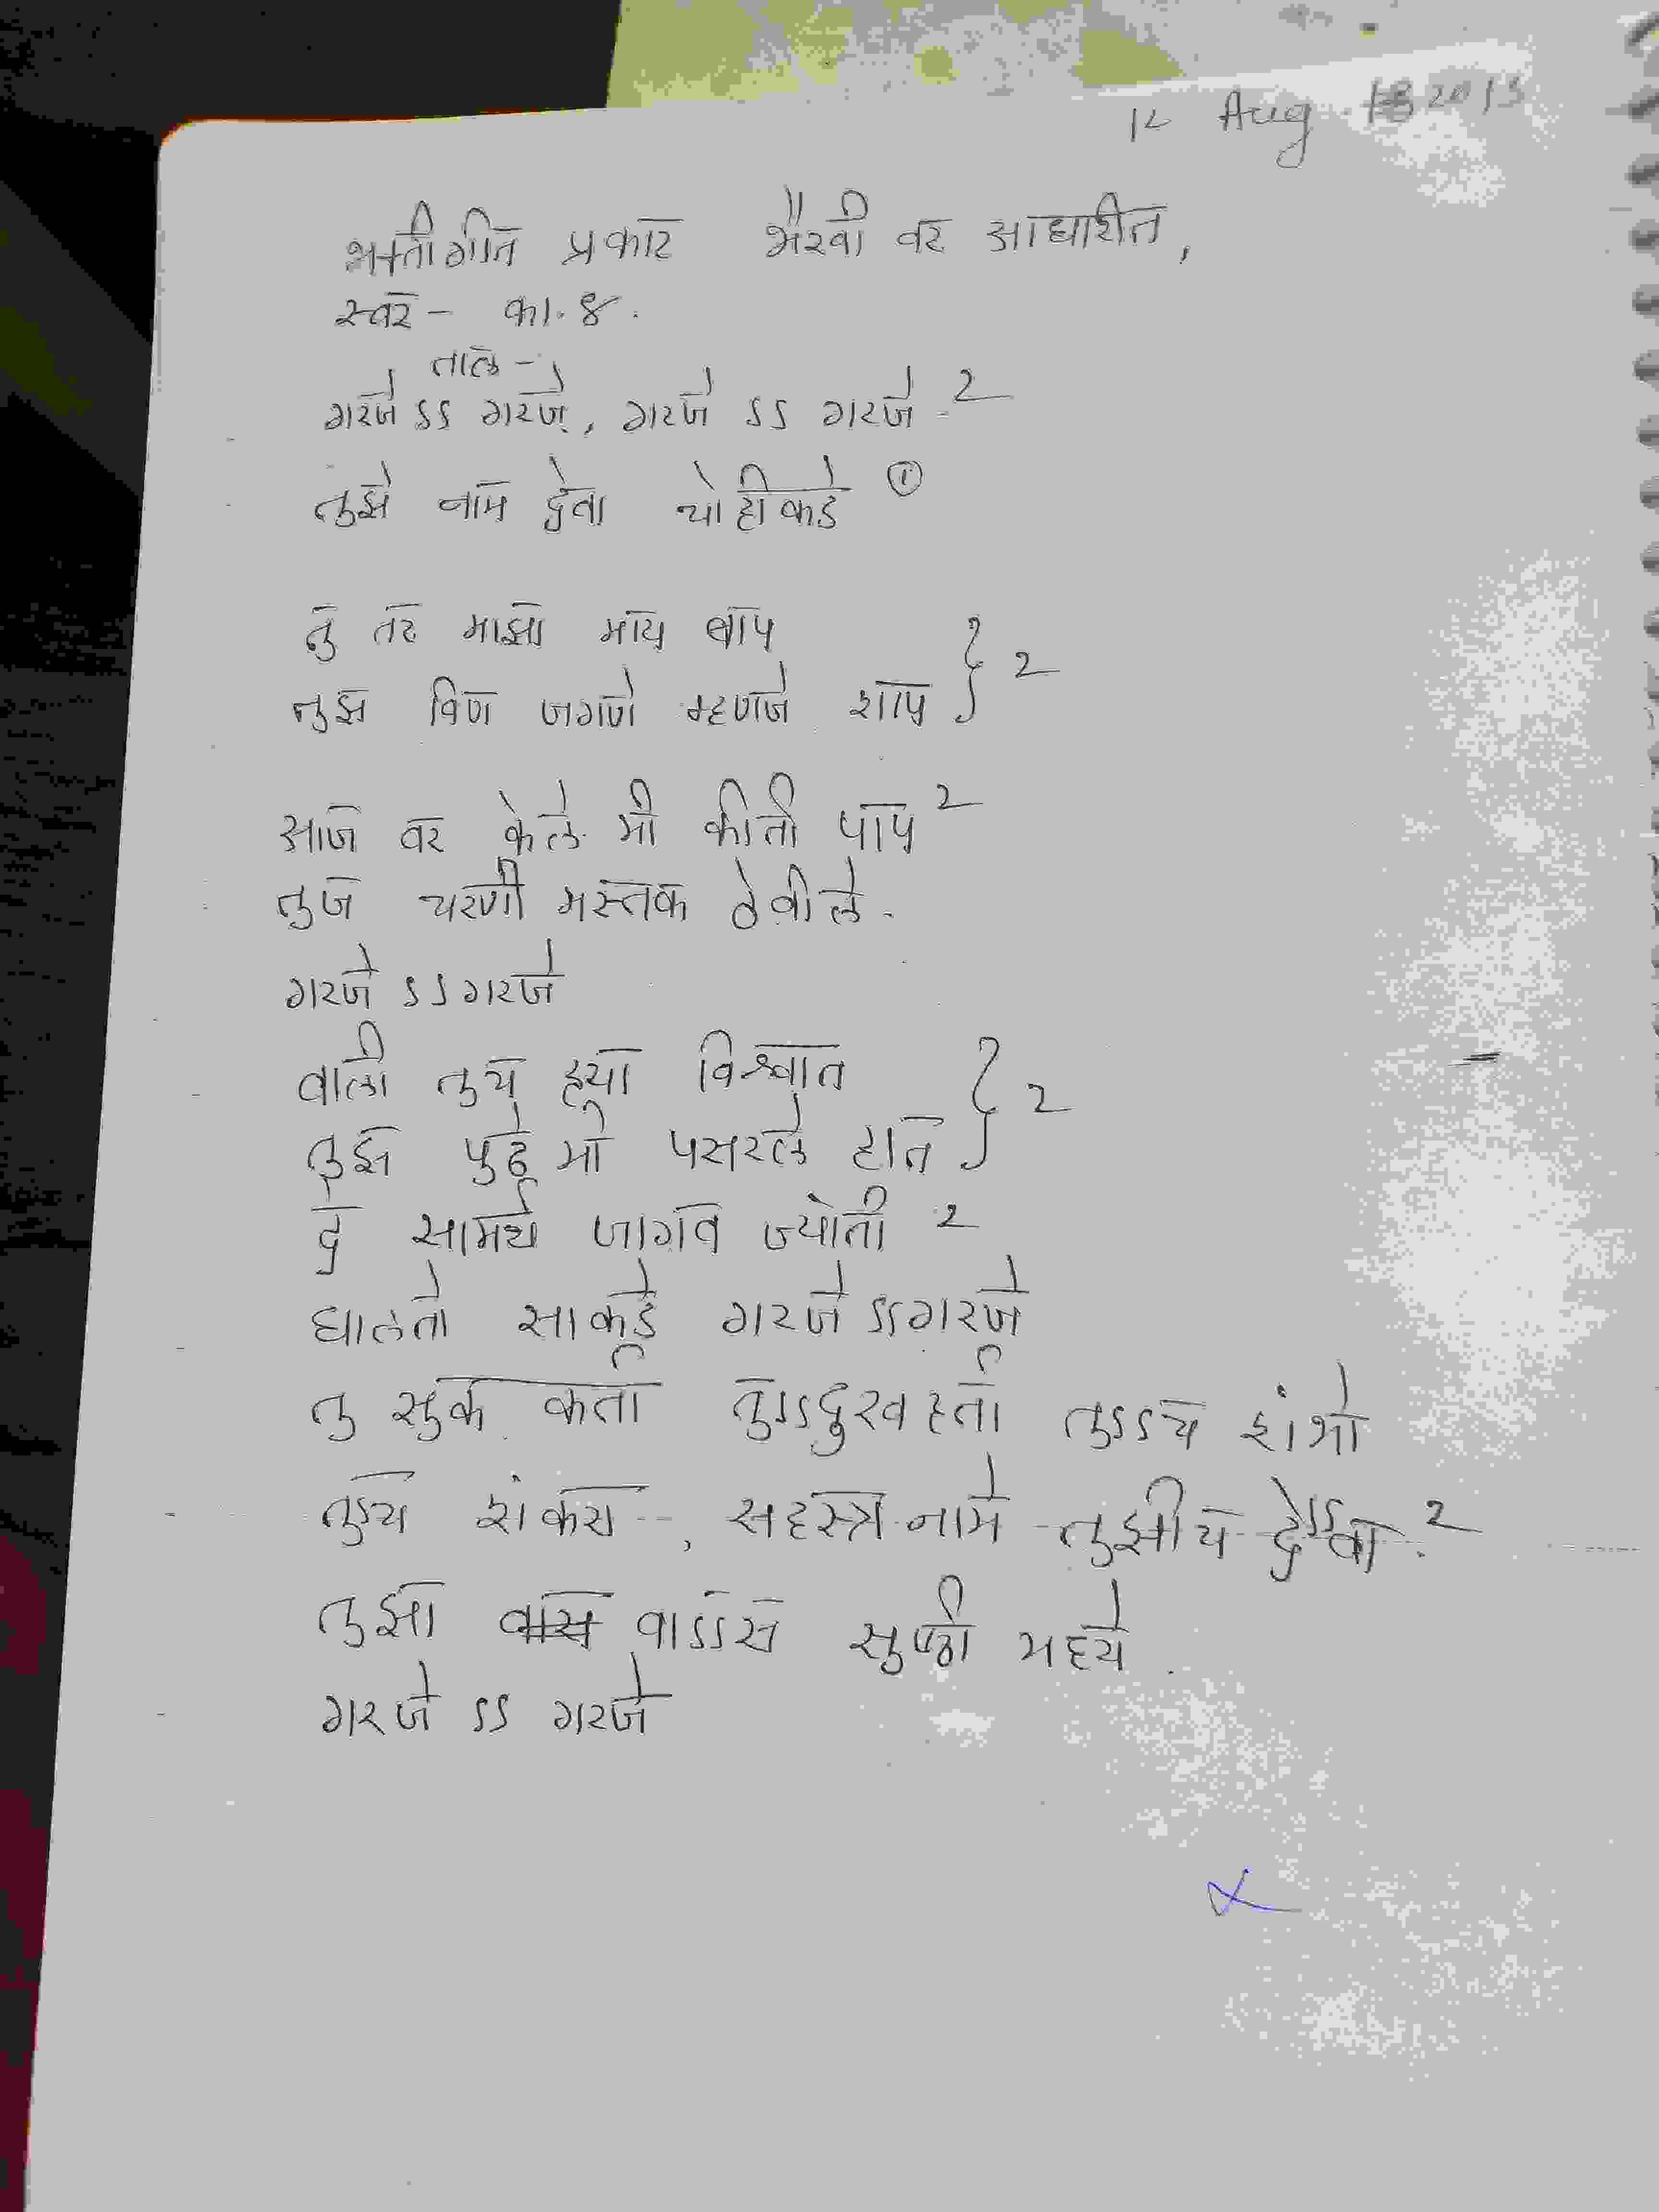 12 Aug 2013
भक्तीगीत प्रकार भैरवी वर आधारीत,
स्वर - का. ४.
ताल -
गरजे ऽऽ गरजे, गरजे ऽऽ गरजे - 2
तुझे नाम देवा चोहीकडे ①
तु तर माझा माय बाप
तुझ विण जगणे म्हणजे शाप } 2
आज वर केले मी कीती पाप 2
तुज चरणी मस्तक ठेवीले.
गरजे ऽऽ गरजे
वाली तुच ह्या विश्वात
तुझ पुढे मी पसरले हात } 2
दे सामर्थ जागव ज्योती 2
घालतो साकडे गरजे ऽऽ गरजे
तु सुक कर्ता तुऽऽ दुख हर्ता तुऽऽच शंभो
तुच शंकरा, सहस्त्र नामे तुझीच देऽऽवा. 2
तुझा वाऽऽस सुष्ठी मध्ये.
गरजे ऽऽ गरजे